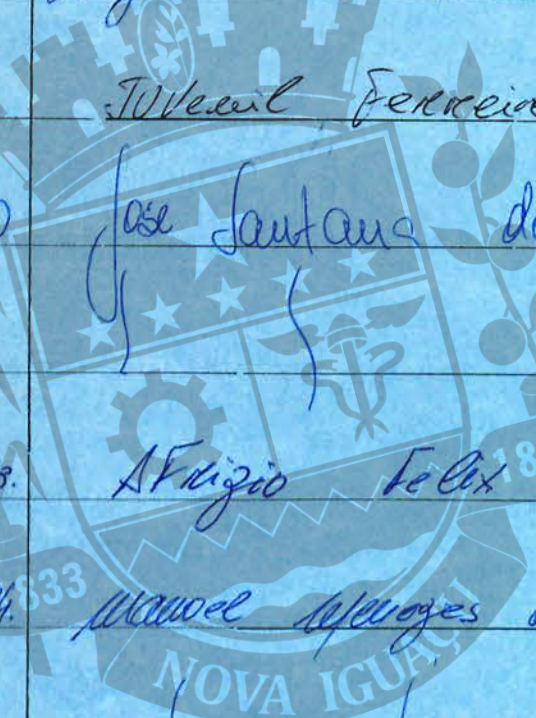 Juvenil Ferreira
José Santana de
3. Afrizio Felix
4. Manoel Menezes d
1833
18
NOVA IGUAÇU